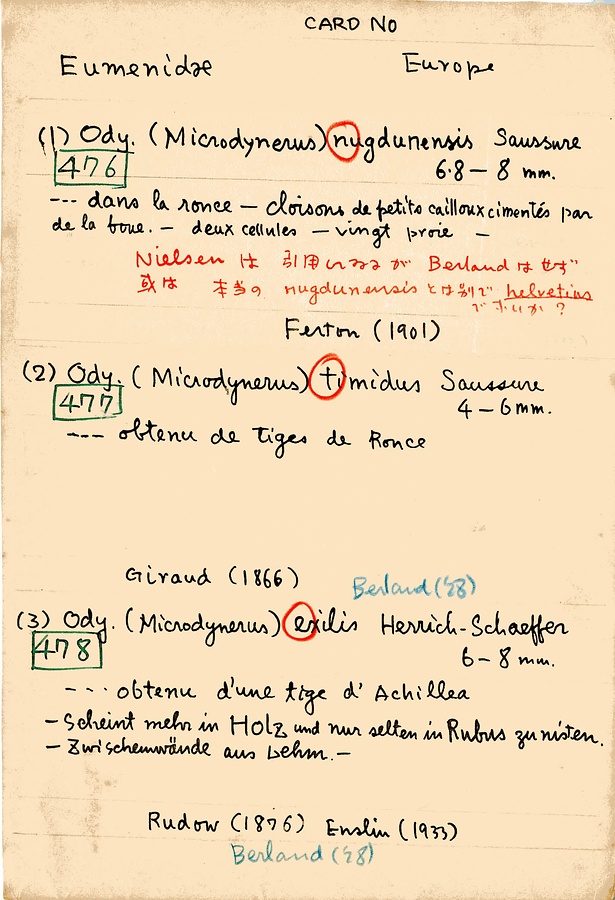 CARD No
Eumenidæ Europe
(1) Ody. (Microdynerus) nugdunensis Saussure
476 6.8 — 8 mm.
--- dans la ronce — cloisons de petits cailloux cimentés par
de la boue. — deux cellules — vingt proie —
Nielsen は 引用しているが Berland はせず
或は 本当の nugdunensis とは別で helvetius
ではないか?
Ferton (1901)
(2) Ody. (Microdynerus) timidus Saussure
477 4 — 6 mm.
--- obtenu de tiges de Ronce
Giraud (1866) Berland ('28)
(3) Ody. (Microdynerus) exilis Herrich-Schaeffer
478 6 — 8 mm.
--- obtenu d'une tige d'Achillea
— Scheint mehr in Holz und nur selten in Rubus zu nisten.
— Zwischenwände aus Lehm. —
Rudow (1876) Enslin (1933)
Berland ('28)